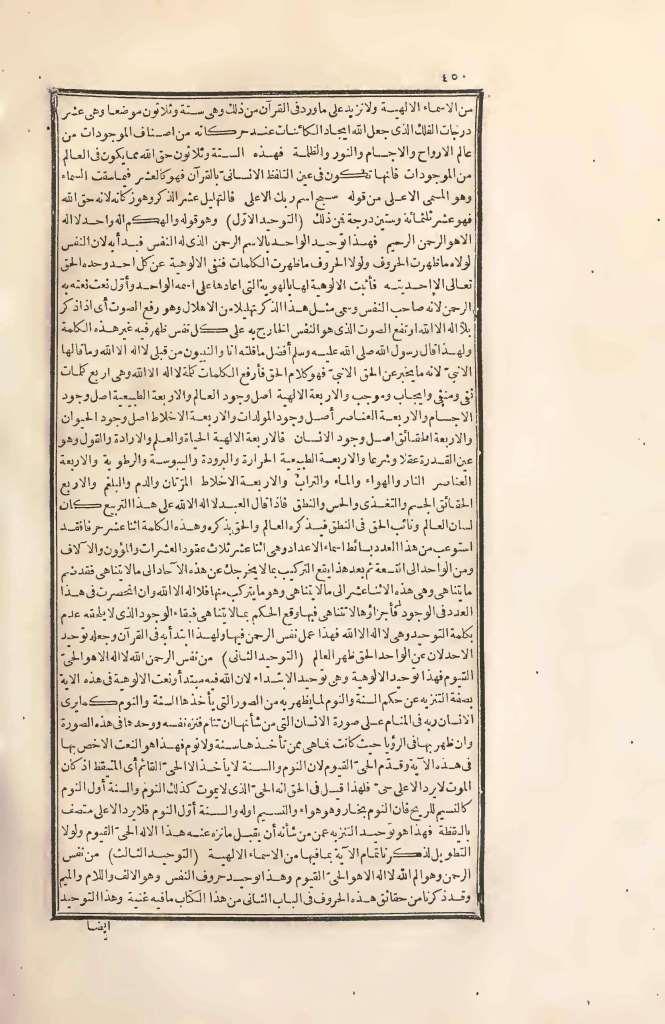 ٤٥٠
من الاسماء الالهية ولا نزيد على ماورد فى القرآن من ذلك وهى ستة وثلاثون موضعا وهى عشر
درجات الفلك الذى جعل الله ايجاد الكائنات عند حركاته من اصناف الموجودات من
عالم الارواح والاجسام والنور والظلمة فهذه الستة وثلاثون حق الله مما يكون فى العالم
من الموجودات فانها تكون فى عين التلفظ الانسانى بالقرآن فهو كالعشر فيما سقت السماء
وهو المسمى الاعلى من قوله سبح اسم ربك الاعلى فالتهليل عشر الذكر وهو زكاته لانه حق الله
فهو عشر ثلثمائة وستين درجة فمن ذلك (التوحيد الاول) وهو قوله والهكم اله واحد لا اله
الا هو الرحمن الرحيم فهذا توحيد الواحد بالاسم الرحمن الذى له النفس فبدأ به لان النفس
لولاه ما ظهرت الحروف ولولا الحروف ما ظهرت الكلمات فنفى الالوهية عن كل احد وحده الحق
تعالى الا احديته فأثبت الالوهية لها بالهوية التى اعادها على اسمه الواحد وأول نعت نعته به
الرحمن لانه صاحب النفس وسمى مثل هذا الذكر تهليلا من الاهلال وهو رفع الصوت أى اذا ذكر
بلا اله الا الله ارتفع الصوت الذى هو النفس الخارج به على كل نفس ظهر فيه غير هذه الكلمة
ولهذا قال رسول الله صلى الله عليه وسلم أفضل ما قلته انا والنبيون من قبلى لا اله الا الله وما قالها
الا نبى لانه ما يخبر عن الحق الا نبى فهو كلام الحق فأرفع الكلمات كلمة لا اله الا الله وهى اربع كلمات
نفى ومنفى وايجاب وموجب والاربعة الالهية اصل وجود العالم والاربعة الطبيعية اصل وجود
الاجسام والاربعة العناصر أصل وجود المولدات والاربعة الاخلاط اصل وجود الحيوان
والاربعة الحقائق اصل وجود الانسان فالاربعة الالهية الحياة والعلم والارادة والقول وهو
عين القدرة عقلا وشرعا والاربعة الطبيعية الحرارة والبرودة واليبوسة والرطوبة والاربعة
العناصر النار والهواء والماء والتراب والاربعة الاخلاط المرتان والدم والبلغم والاربع
الحقائق الجسم والتغذى والحس والنطق فاذا قال العبد لا اله الا الله على هذا التربيع كان
لسان العالم ونائب الحق فى النطق فيذكره العالم والحق بذكره وهذه الكلمة اثنا عشر حرفا فقد
استوعب من هذا العدد بسائط اسماء الاعداد وهى اثنا عشر ثلاث عقود العشرات والمؤون والآلاف
ومن الواحد الى التسعة ثم بعد هذا يقع التركيب بما لا يخرجك عن هذه الآحاد الى ما لا يتناهى فقد ضم
ما يتناهى وهى هذه الاثنا عشر الى ما لا يتناهى وهو ما يتركب منها فلا اله الا الله وان انحصرت فى هذا
العدد فى الوجود فجزاؤها لا يتناهى فيها وقع الحكم بما لا يتناهى فبقاء الوجود الذى لا يلحقه عدم
بكلمة التوحيد وهى لا اله الا الله فهذا عمل نفس الرحمن فيها ولهذا ابتدأ به فى القرآن وجعله توحيد
الاحد لان عن الواحد الحق ظهر العالم (التوحيد الثانى) من نفس الرحمن الله لا اله الا هو الحى
القيوم فهذا توحيد الالوهية وهى توحيد الابتداء لان الله فيه مبتدأ ونعت الالوهية فى هذه الاية
بصفة التنزيه عن حكم السنة والنوم لما يظهر به من الصور التى يأخذها السنة والنوم كما يرى
الانسان ربه فى المنام على صورة الانسان التى من شأنها ان تنام فنزه نفسه ووحدها فى هذه الصورة
وان ظهر بها فى الرؤيا حيث كانت فما هى ممن تأخذها سنة ولا نوم فهذا هو النعت الاخص بها
فى هذه الآية وقدم الحى القيوم لان النوم والسنة لا يأخذ الا الحى القائم أى المتيقظ اذ كان
الموت لا يرد الا على حى فلهذا قيل فى الحق انه الحى الذى لا يموت كذلك النوم والسنة أول النوم
كالنسيم للريح فان النوم بخار وهو هواء والنسيم اوله والسنة أول النوم فلا يرد الا على متصف
باليقظة فهذا هو توحيد التنزيه عمن من شأنه أن يقبل ما نزه عنه هذا الاله الحى القيوم ولولا
التطويل لذكرنا تمام الآية بما فيها من الاسماء الالهية (التوحيد الثالث) من نفس
الرحمن وهو الم الله لا اله الا هو الحى القيوم وهذا توحيد حروف النفس وهو الالف واللام والميم
وقد ذكرنا من حقائق هذه الحروف فى الباب الثانى من هذا الكتاب ما فيه غنية وهذا التوحيد
ايضا